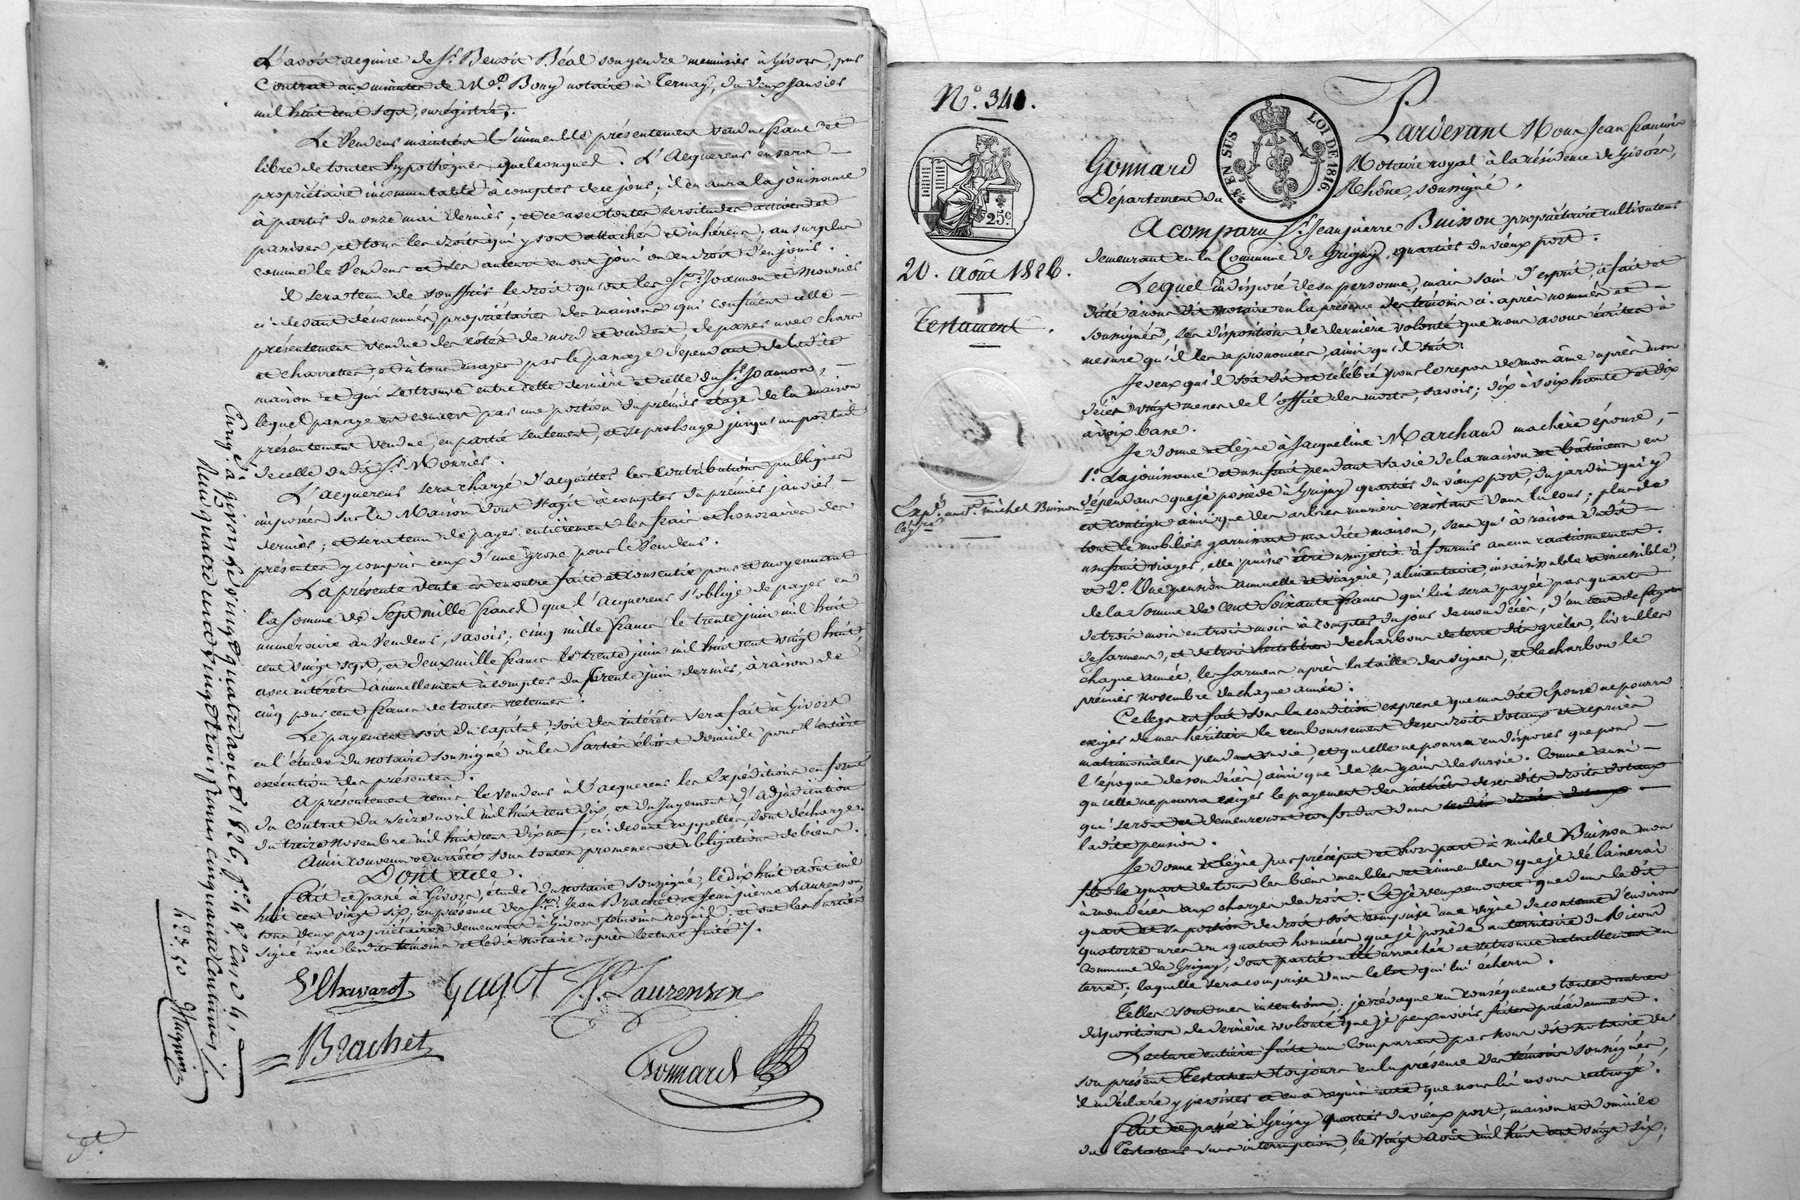 L'avoir acquise de Sr. Benoit Béal son gendre menuisier à Givors, par
Contrat aux minutes de Me. Bony notaire à Ternay, du deux janvier
mil huit cent sept, enregistré.
Le Vendeur maintient l'immeuble présentement vendu franc et
libre de toutes hypothèques quelconques. L'Acquéreur en sera
propriétaire incommutable à compter de ce jour; il en aura la jouissance
à partir du onze mai dernier, et ce avec toutes servitudes actives et
passives, et tous les droits qui y sont attachés et inhérens, au surplus
comme le Vendeur et ses auteurs en ont joui ou eu droit d'en jouir.
Il sera tenu de souffrir le droit qu'ont les Srs. Joamon et Mouriès
ci-devant dénommés, propriétaires des maisons qui confinent celle
présentement vendue des côtés de nord et occident, de passer avec chars
et charrettes, et à tous usages par le passage dépendant de ladite
maison et qui se trouve entre cette dernière et celle du Sr. Joamon,
lequel passage est couvert par une portion du premier étage de la maison
présentement vendue, en partie seulement, et se prolonge jusqu'au portail
de celle du dit Sr. Mouriès.
L'acquéreur sera chargé d'acquitter les contributions publiques
imposées sur la Maison dont s'agit à compter du premier janvier
dernier; et sera tenu de payer entièrement les frais et honoraires des
présentes y compris ceux d'une grosse pour le Vendeur.
La présente vente est en outre faite et consentie pour et moyennant
la somme de Sept mille francs que l'Acquéreur s'oblige de payer en
numéraire au Vendeur, savoir; cinq mille francs le trente juin mil huit
cent vingt sept, et deux mille francs le trente juin mil huit cent vingt huit,
avec intérêts annuellement à compter du trente juin dernier, à raison de
cinq pour cent francs de toutes retenues.
Le payement soit du capital, soit des intérêts sera fait à Givors
en l'étude du notaire soussigné où les Parties élisent domicile pour l'entière
exécution des présentes.
A présentement remis le vendeur à l'acquéreur les Expéditions en forme
du contrat du seize avril mil huit cent dix et du jugement d'adjudication
du treize novembre mil huit cent dix neuf, ci-devant rappelés dont décharge.
Ainsi convenu et arrêté sous toutes promesses et obligations de biens.
Dont acte.
Fait et passé à Givors, étude du notaire soussigné, le dix huit août mil
huit cent vingt six, en présence des Srs. Jean Brachet et Jean pierre Laurenson
tous deux propriétaires demeurant à Givors, témoins requis, et ont les parties
signé avec les dits témoins et le dit notaire après lecture faite.
Chavarot Guyot J.P. Laurenson
Brachet
Gonnard
Enregé. à Givors le vingt quatre août 1826, fo. 49 Vo. Case 4,
Reçu quatre cent vingt trois francs cinquante centimes
423,50 Hugnon
No. 341.
25c.
20. Août 1826.
Testament.
Expé. au Sr. Michel Buisson
25 EN SUS LOI DE 1816
Pardevant Nous Jean françois
Gonnard Notaire royal à la résidence de Givors,
Département du Rhône, soussigné.
A comparu Sr. Jean pierre Buisson propriétaire cultivateur
demeurant en la Commune de Grigny, quartier du vieux port.
Lequel indisposé de sa personne, mais sain d'esprit, a fait et
dicté à nous dit notaire en la présence des témoins ci-après nommés et
soussignés, ses dispositions de dernière volonté que nous avons écrites à
mesure qu'il les a prononcées, ainsi qu'il suit.
Je veux qu'il soit dit et célébré pour le repos de mon âme après mon
décès vingt messes de l'office des morts, savoir; dix à voix haute et dix
à voix basse.
Je donne et lègue à Jacqueline Marchand ma chère épouse,
1o. La jouissance et usufruit pendant sa vie de la maison et bâtimens en
dépendant que je possède à Grigny quartier du vieux port, du jardin qui y
est contigu ainsi que des arbres muriers existant dans la cour; plus de
tout le mobilier garnissant ma dite maison, sans qu'à raison du dit
usufruit viager, elle puisse être assujettie à fournir aucun cautionnement.
et 2o. Une pension annuelle et viagère, alimentaire, insaisissable et incessible,
de la somme de cent soixante francs qui lui sera payée par quartier
de trois mois en trois mois à compter du jour de mon décès, d'un cent de fagots
de sarmens, et de trois hectolitres de charbon de terre dit grêles, livrables
chaque année, les sarmens après la taille des vignes, et le charbon le
premier novembre de chaque année.
Ce legs est fait sous la condition expresse que ma dite épouse ne pourra
exiger de mes héritiers le remboursement de ses droits dotaux et reprises
matrimoniales pendant sa vie, et qu'elle ne pourra en disposer que pour
l'époque de son décès, ainsi que de ses gains de survie. Comme aussi
qu'elle ne pourra exiger le payement des intérêts de ses dits droits dotaux
qui seront et demeureront confondus dans
la dite pension.
Je donne et lègue par préciput et hors part à Michel Buisson mon
fils le quart de tous les biens meubles et immeubles que je délaisserai
à mon décès aux charges de droit. Et je veux en outre que dans le dit
quart et sa portion de droit soit comprise une vigne de contenue d'environ
quatorze ares ou quatre hommées que je possède au territoire du
Commune de Grigny, dont partie a été arrachée et se trouve actuellement en
terre; laquelle sera comprise dans le lot qui lui écherra.
Telles sont mes intentions; je révoque en conséquence toutes autres
dispositions de dernière volonté que je peux avoir faites précédemment.
Lecture entière faite au Comparant par nous dit notaire de
son présent Testament toujours en la présence des témoins soussignés,
il a déclaré y persister et en a requis acte que nous lui avons octroyé.
Fait et passé à Grigny quartier du vieux port, maison et domicile
du Testateur sans interruption, le vingt août mil huit cent vingt six,